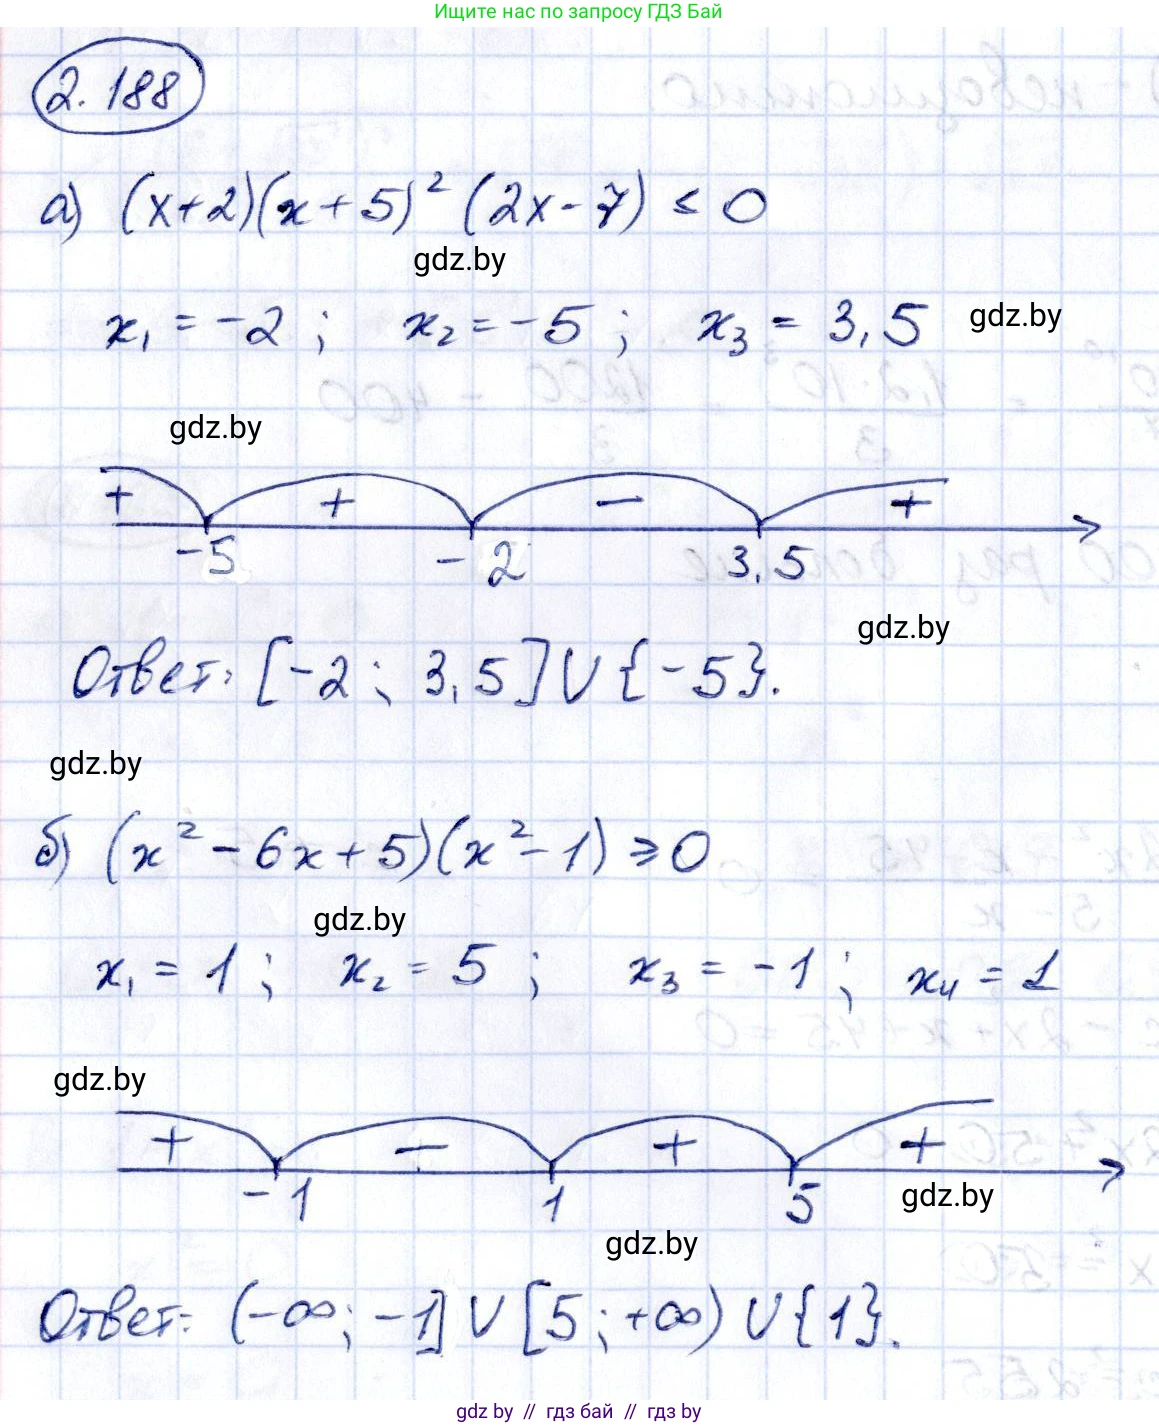 Ищите нас по запросу ГДЗ Бай
2.188
а) (x+2)(x+5)² (2x-7) ≤ 0
gdz.by
x₁ = -2 ; x₂ = -5 ; x₃ = 3,5 gdz.by
gdz.by
+ + - +
-5 -2 3,5
gdz.by
Ответ: [-2 ; 3,5] ∪ {-5}.
gdz.by
б) (x² - 6x + 5)(x² - 1) ≥ 0
gdz.by
x₁ = 1 ; x₂ = 5 ; x₃ = -1 ; x₄ = 1
gdz.by
+ - + +
-1 1 5
gdz.by
gdz.by
Ответ: (-∞; -1] ∪ [5 ; +∞) ∪ {1}.
gdz by // гдз бай // гдз by